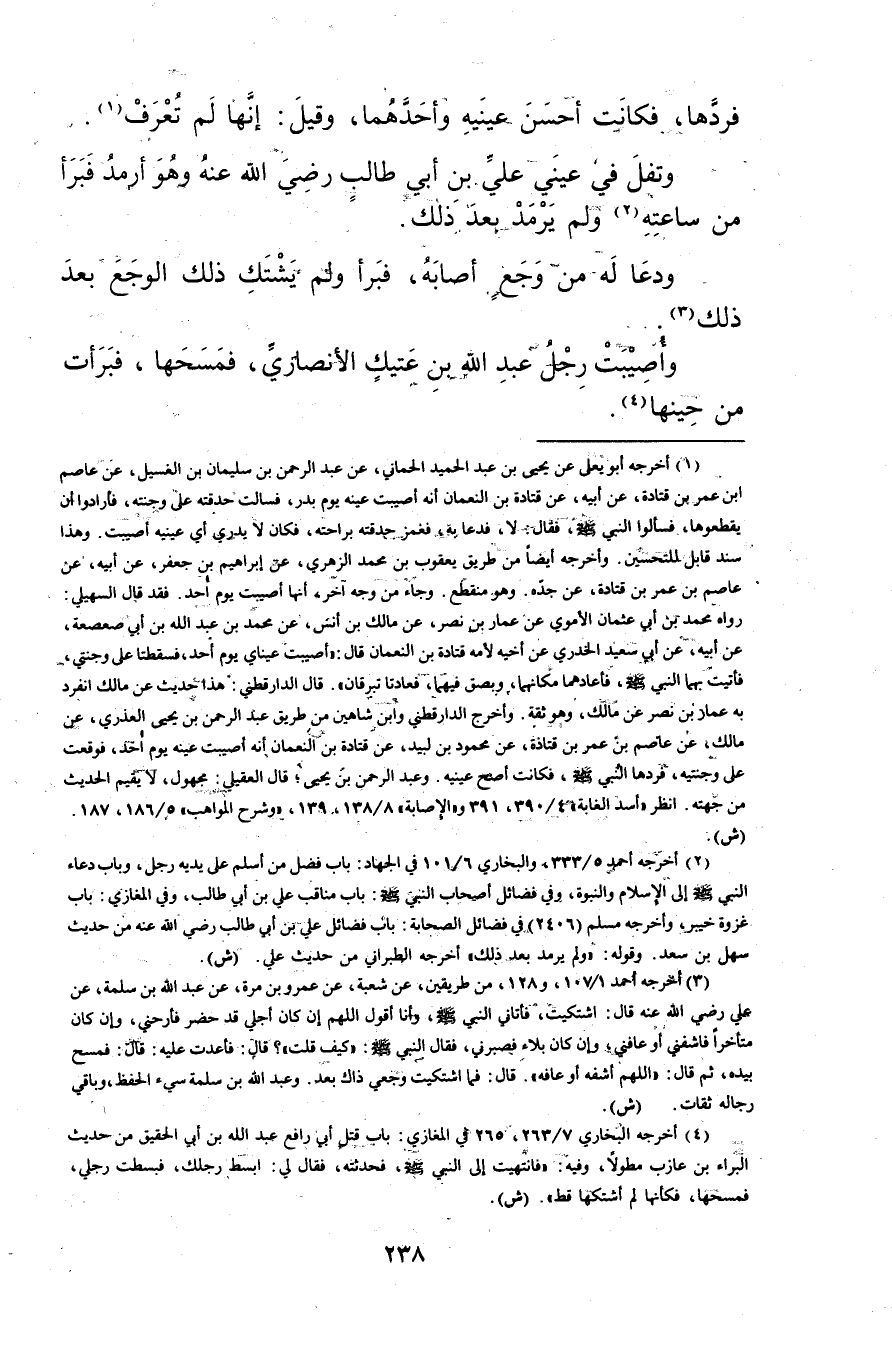 فردَّها، فكانَت أحسَنَ عينَيهِ وأحَدَّهُما، وقيلَ: إنَّها لَم تُعْرَفْ(١).
وتفلَ في عينَي عليِّ بن أبي طالبٍ رضيَ الله عنهُ وهُوَ أرمدُ فَبَرَأ
من ساعتِهِ(٢) ولم يَرْمَدْ بعدَ ذلك.
ودعَا لَه من وَجَعٍ أصابَهُ، فبَرأ ولم يَشْتَكِ ذلك الوجَعَ بعدَ
ذلك(٣).
وأُصِيْبَتْ رِجْلُ عبدِ اللهِ بنِ عَتيكٍ الأنصاريِّ، فمَسَحَها، فبَرَأت
من حِينها(٤).
(١) أخرجه أبو يعلى عن يحيى بن عبد الحميد الحماني، عن عبد الرحمن بن سليمان بن الغسيل، عن عاصم
ابن عمر بن قتادة، عن أبيه، عن قتادة بن النعمان أنه أصيبت عينه يوم بدر، فسالت حدقته على وجنته، فأرادوا أن
يقطعوها، فسألوا النبي ﷺ، فقال: لا، فدعا به، فغمز حدقته براحته، فكان لا يدري أي عينيه أصيبت. وهذا
سند قابل للتحسين. وأخرجه أيضاً من طريق يعقوب بن محمد الزهري، عن إبراهيم بن جعفر، عن أبيه، عن
عاصم بن عمر بن قتادة، عن جدّه. وهو منقطع. وجاء من وجه آخر، أنها أصيبت يوم أُحد. فقد قال السهيلي:
رواه محمد بن أبي عثمان الأموي عن عمار بن نصر، عن مالك بن أنس، عن محمد بن عبد الله بن أبي صعصعة،
عن أبيه، عن أبي سعيد الخدري عن أخيه لأمه قتادة بن النعمان قال: «أصيبت عيناي يوم أحد، فسقطتا على وجنتي،
فأتيت بهما النبي ﷺ، فأعادهما مكانهما، وبصق فيهما، فعادتا تبرقان». قال الدارقطني: هذا حديث عن مالك انفرد
به عمار بن نصر عن مالك، وهو ثقة. وأخرج الدارقطني وابن شاهين من طريق عبد الرحمن بن يحيى العذري، عن
مالك، عن عاصم بن عمر بن قتادة، عن محمود بن لبيد، عن قتادة بن النعمان أنه أصيبت عينه يوم أُحد، فوقعت
على وجنتيه، فردها النبي ﷺ، فكانت أصح عينيه. وعبد الرحمن بن يحيى؛ قال العقيلي: مجهول، لا يقيم الحديث
من جهته. انظر «أسد الغابة» ٣٩٠/٤، ٣٩١ و«الإصابة» ١٣٨/٨، ١٣٩، «وشرح المواهب» ١٨٦/٥، ١٨٧.
(ش).
(٢) أخرجه أحمد ٣٣٣/٥، والبخاري ١٠١/٦ في الجهاد: باب فضل من أسلم على يديه رجل، وباب دعاء
النبي ﷺ إلى الإسلام والنبوة، وفي فضائل أصحاب النبي ﷺ: باب مناقب علي بن أبي طالب، وفي المغازي: باب
غزوة خيبر، وأخرجه مسلم (٢٤٠٦) في فضائل الصحابة: باب فضائل علي بن أبي طالب رضي الله عنه من حديث
سهل بن سعد. وقوله: «ولم يرمد بعد ذلك» أخرجه الطبراني من حديث علي. (ش).
(٣) أخرجه أحمد ١٠٧/١، و١٢٨، من طريقين، عن شعبة، عن عمرو بن مرة، عن عبد الله بن سلمة، عن
علي رضي الله عنه قال: اشتكيت، فأتاني النبي ﷺ، وأنا أقول اللهم إن كان أجلي قد حضر فأرحني، وإن كان
متأخراً فاشفني أو عافني، وإن كان بلاء فصبرني، فقال النبي ﷺ: «كيف قلت»؟ قال: فأعدت عليه: قال: فمسح
بيده، ثم قال: «اللهم أشفه أو عافه». قال: فما اشتكيت وجعي ذاك بعد. وعبد الله بن سلمة سيء الحفظ، وباقي
رجاله ثقات. (ش).
(٤) أخرجه البخاري ٢٦٣/٧، ٢٦٥ في المغازي: باب قتل أبي رافع عبد الله بن أبي الحقيق من حديث
البراء بن عازب مطولاً، وفيه: «فانتهيت إلى النبي ﷺ، فحدثته، فقال لي: ابسط رجلك، فبسطت رجلي،
فمسحها، فكأنها لم أشتكها قط». (ش).
٢٣٨